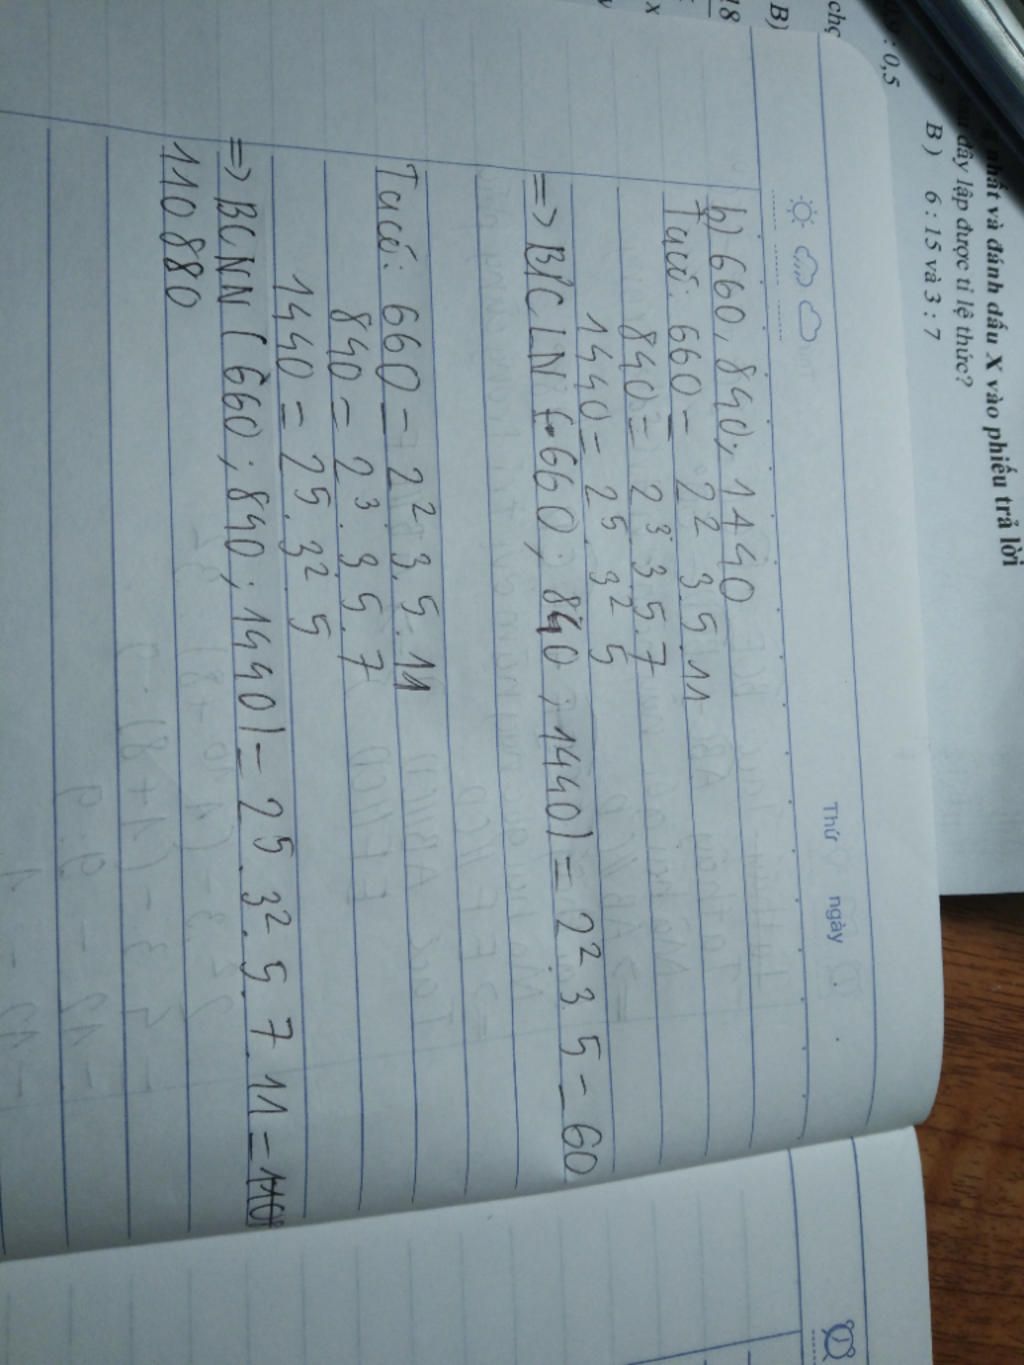 nhất và đánh dấu X vào phiếu trả lời
đây lập được tỉ lệ thức?
B) 6 : 15 và 3 : 7
: 0,5
B)
18
x
Thứ ngày
b) 660, 840, 1440
Ta có: 660 = 2² 3.5 11
840 = 2³ 3 5.7
1440 = 2⁵ 3² 5
=> ƯCLN (660; 840; 1440) = 2² 3. 5 = 60
Ta có: 660 = 2² 3.5.11
840 = 2³. 3 5.7
1440 = 2⁵. 3² 5
=> BCNN (660; 840; 1440) = 2⁵. 3². 5. 7. 11 =
110 880